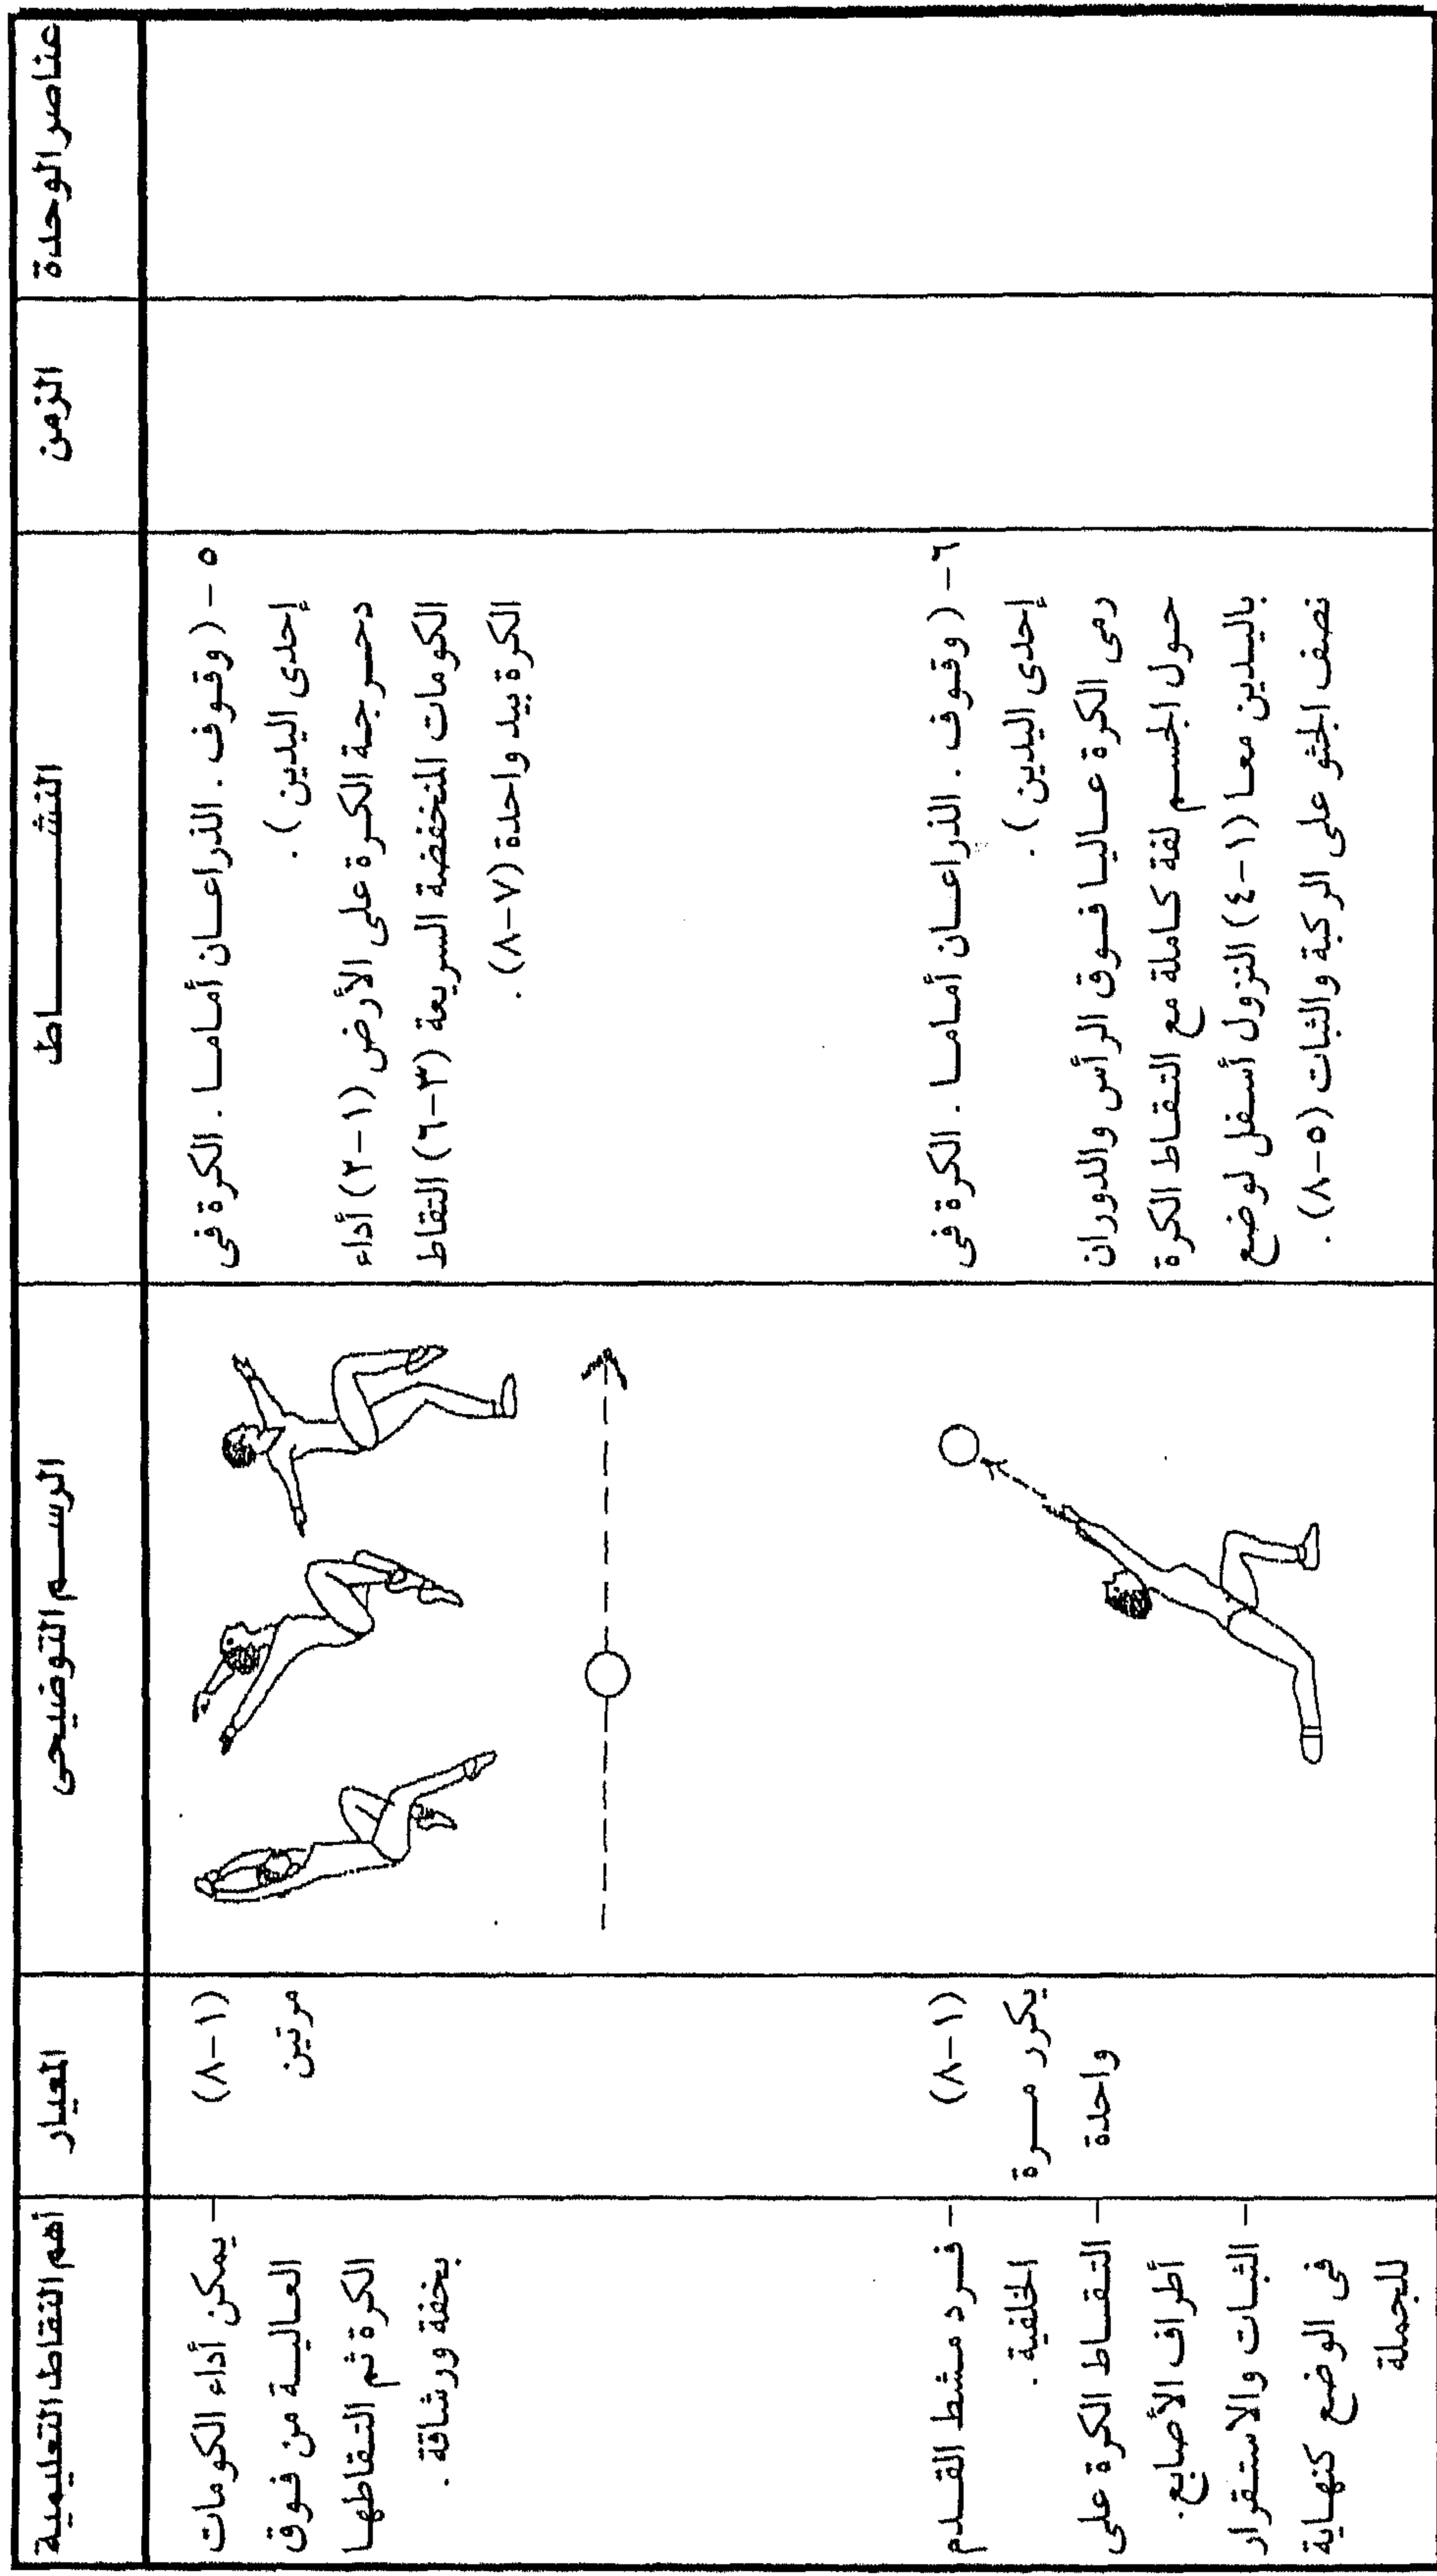 عناصر الوحدة
الزمن
النشـــــــاط
الرســـم التوضيحى
المعيار
أهم النقاط التعليمية
٥ - (وقوف . الذراعـان أمامـا . الكرة فى
إحدى اليدين ) .
دحـرجة الكـرة على الأرض (١-٢) أداء
الكومات المنخفضة السريعة (٣-٦) التقاط
الكرة بيد واحدة (٧-٨) .
(١-٨)
مرتين
- يمكن أداء الكومات
العاليـة من فـوق
الكرة ثم التقاطها
بخفة ورشاقة .
٦- (وقوف . الذراعـان أمامـا . الكرة فى
إحدى اليدين ) .
رمى الكرة عـاليا فـوق الرأس والدوران
حـول الجسـم لفة كـاملة مع التقـاط الكرة
باليـدين معـا (١-٤) النزول أسـفل لوضع
نصف الجثو على الركبة والثبات (٥-٨) .
(١-٨)
يكرر مـــرة
واحدة
- فـرد مشط القـدم
الخلفية .
- التقـاط الكرة على
أطراف الأصابع.
- الثبات والاستقرار
فى الوضع كنهـاية
للجملة